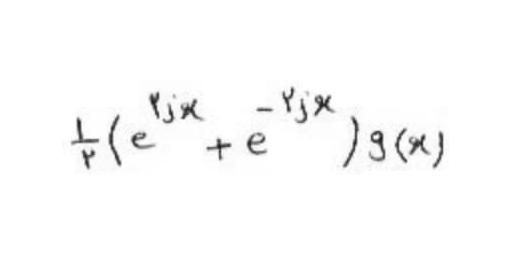 ۱/۲ (e^{۲jx} + e^{-۲jx}) g(x)